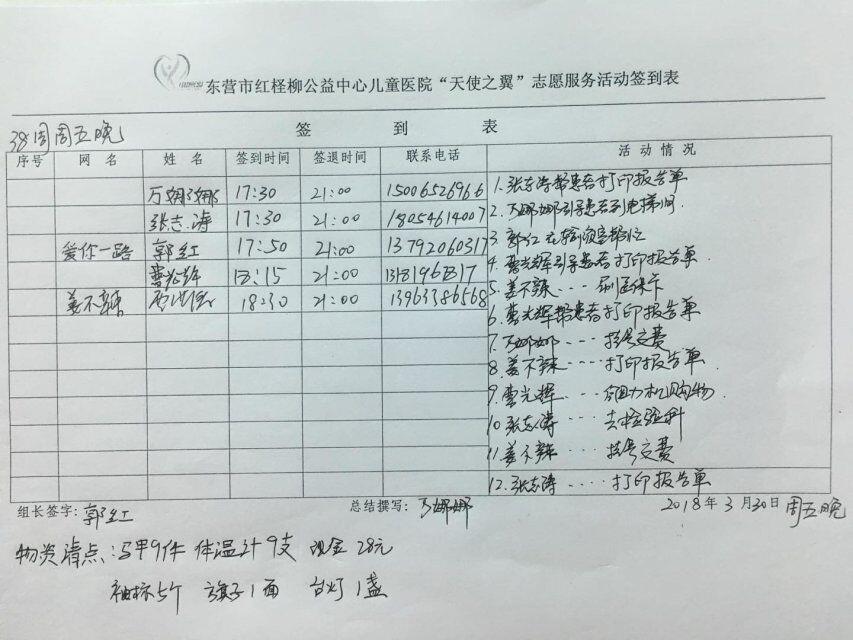 东营市红柽柳公益中心儿童医院“天使之翼”志愿服务活动签到表
38周周五晚
签 到 表
序号 网名 姓名 签到时间 签退时间 联系电话 活动情况
万娜娜 17:30 21:00 15006526966
张志涛 17:30 21:00 18054614007
爱你一路 郭红 17:50 21:00 13792060317
曹光辉 18:15 21:00
姜不辣 18:30 21:00 13963386568
1.张志涛帮患者打印报告单
2.万娜娜引导患者到电梯间.
3.郭红在输液室帮忙
4.曹光辉引导患者打印报告单.
5.姜不辣...
6.曹光辉帮患者打印报告单
7.万娜娜....挂号交费
8.姜不辣....打印报告单.
9.曹光辉...自助机购物.
10.张志涛...去检验科
11.姜不辣...挂号交费
12.张志涛....打印报告单
组长签字:郭红
总结撰写:万娜娜
2018年3月30日周五晚
物资清点:马甲9件 体温计9支 现金28元
袖标5个 旗子1面 台灯1盏